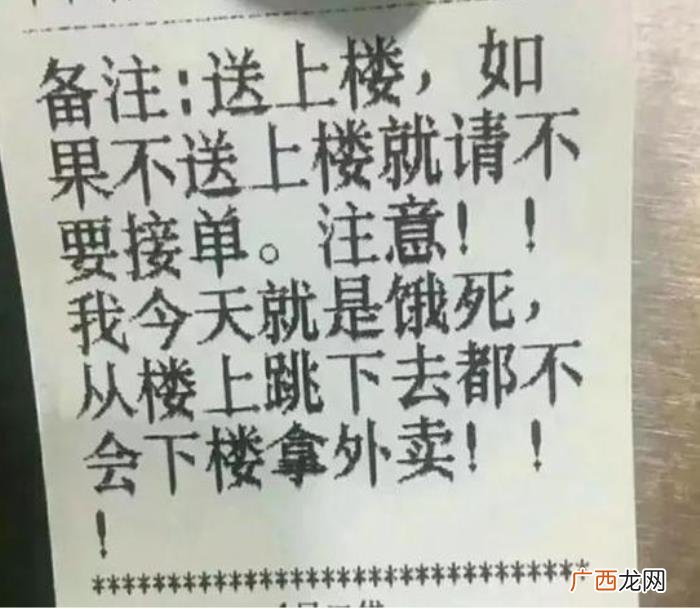 备注:送上楼，如
果不送上楼就请不
要接单。注意！！
我今天就是饿死，
从楼上跳下去都不
会下楼拿外卖！！
！
********************************
广西龙网